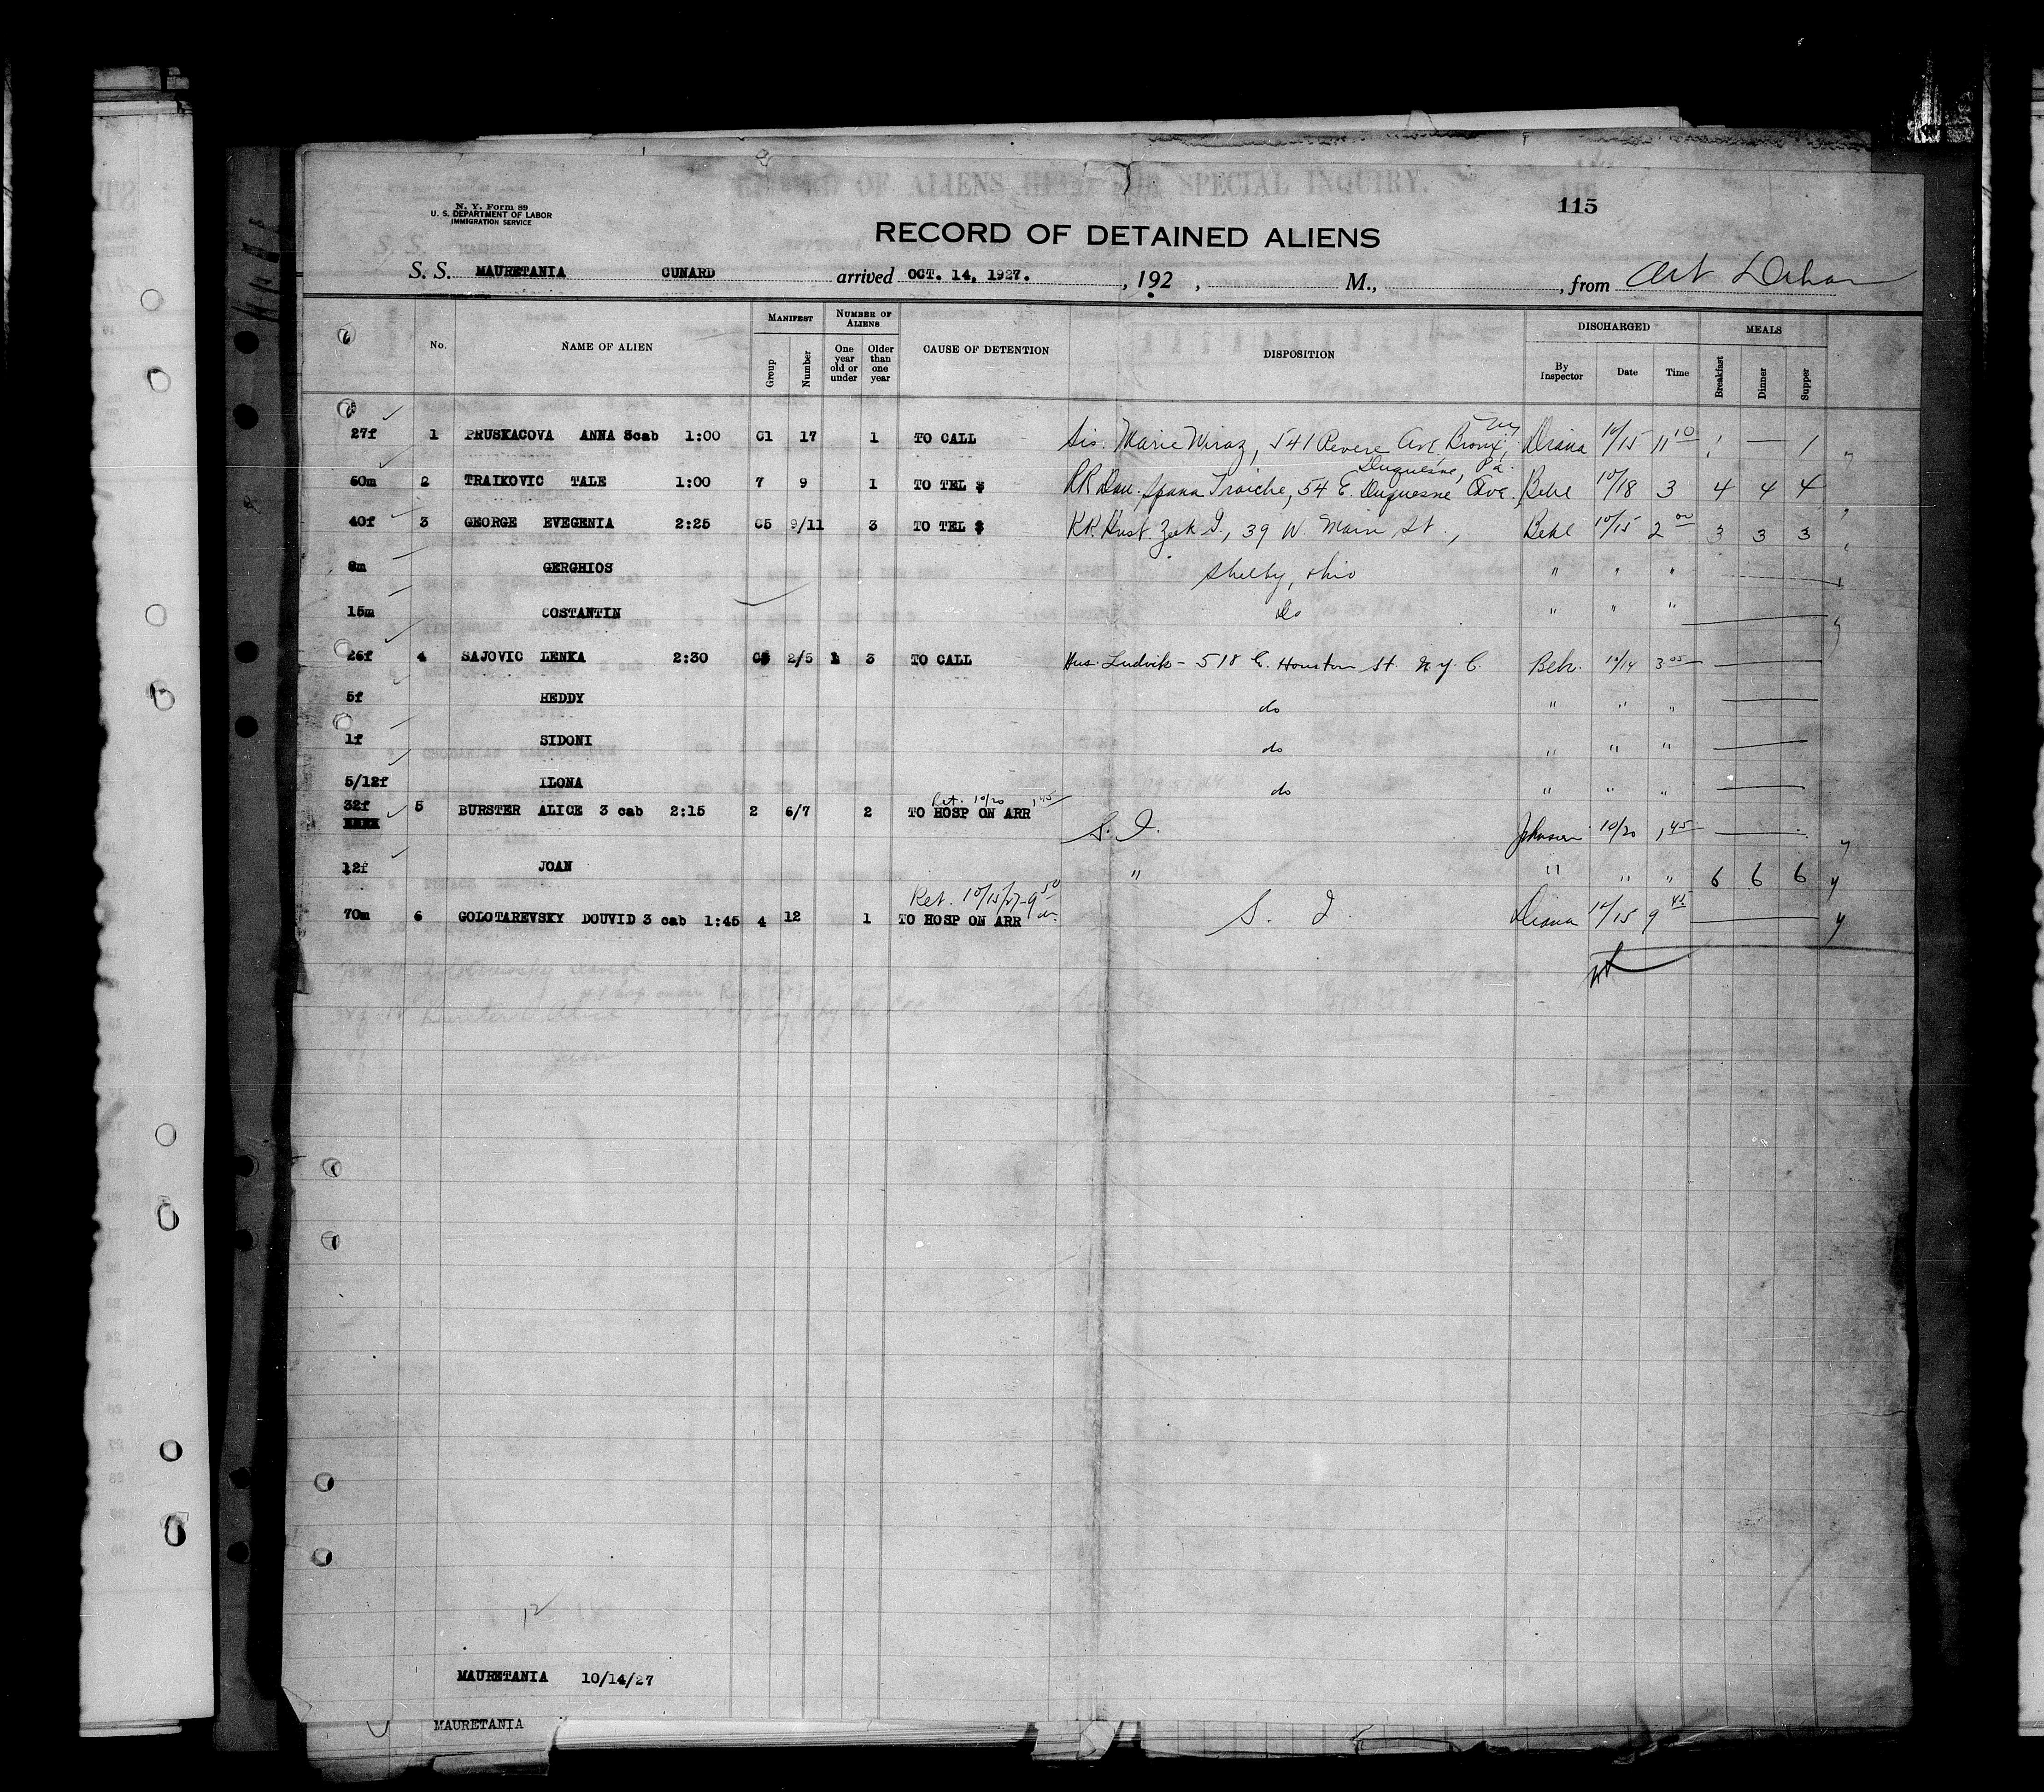 N. Y. Form 89
U. S. DEPARTMENT OF LABOR
IMMIGRATION SERVICE
115
RECORD OF DETAINED ALIENS
S. S. MAURETANIA CUNARD arrived OCT. 14, 1927. , 192 , M., , from
MANIFEST NUMBER OF ALIENS DISCHARGED MEALS
No. NAME OF ALIEN Group Number One year old or under Older than one year CAUSE OF DETENTION DISPOSITION By Inspector Date Time Breakfast Dinner Supper
27f 1 PRUSKACOVA ANNA 3cab 1:00 C1 17 1 TO CALL Sis. Marie 541 Revere Ave. Bronx, NY Diana 10/15 11 10 1 — 1
Duquesne, Pa.
60m 2 TRAIKOVIC TALE 1:00 7 9 1 TO TEL $ RR Dau. Spana Troiche, 54 E. Duquesne Ave. Behl 10/18 3 4 4 4
40f 3 GEORGE EVEGENIA 2:25 C5 9/11 3 TO TEL $ RR. Husb. Zeek G., 39 W. Main St., Behl 10/15 2 00 3 3 3
8m GERGHIOS Shelby, Ohio " " "
15m COSTANTIN Do " " "
26f 4 SAJOVIC LENKA 2:30 2/5 1 3 TO CALL Hus. Ludvik - 518 E. Houston St. N.Y.C. Beh. 10/14 3 05
5f HEDDY do " " "
1f SIDONI do " " "
5/12f ILONA do " " "
Ret. 10/20 1 45
32f 5 BURSTER ALICE 3 cab 2:15 2 6/7 2 TO HOSP ON ARR S. I. Johnson 10/20 1 45
12f JOAN " " " " 6 6 6
Ret. 10/15/27 - 9 50
70m 6 GOLOTAREVSKY DOUVID 3 cab 1:45 4 12 1 TO HOSP ON ARR S. I. Diana 10/15 9 45
12
MAURETANIA 10/14/27
MAURETANIA